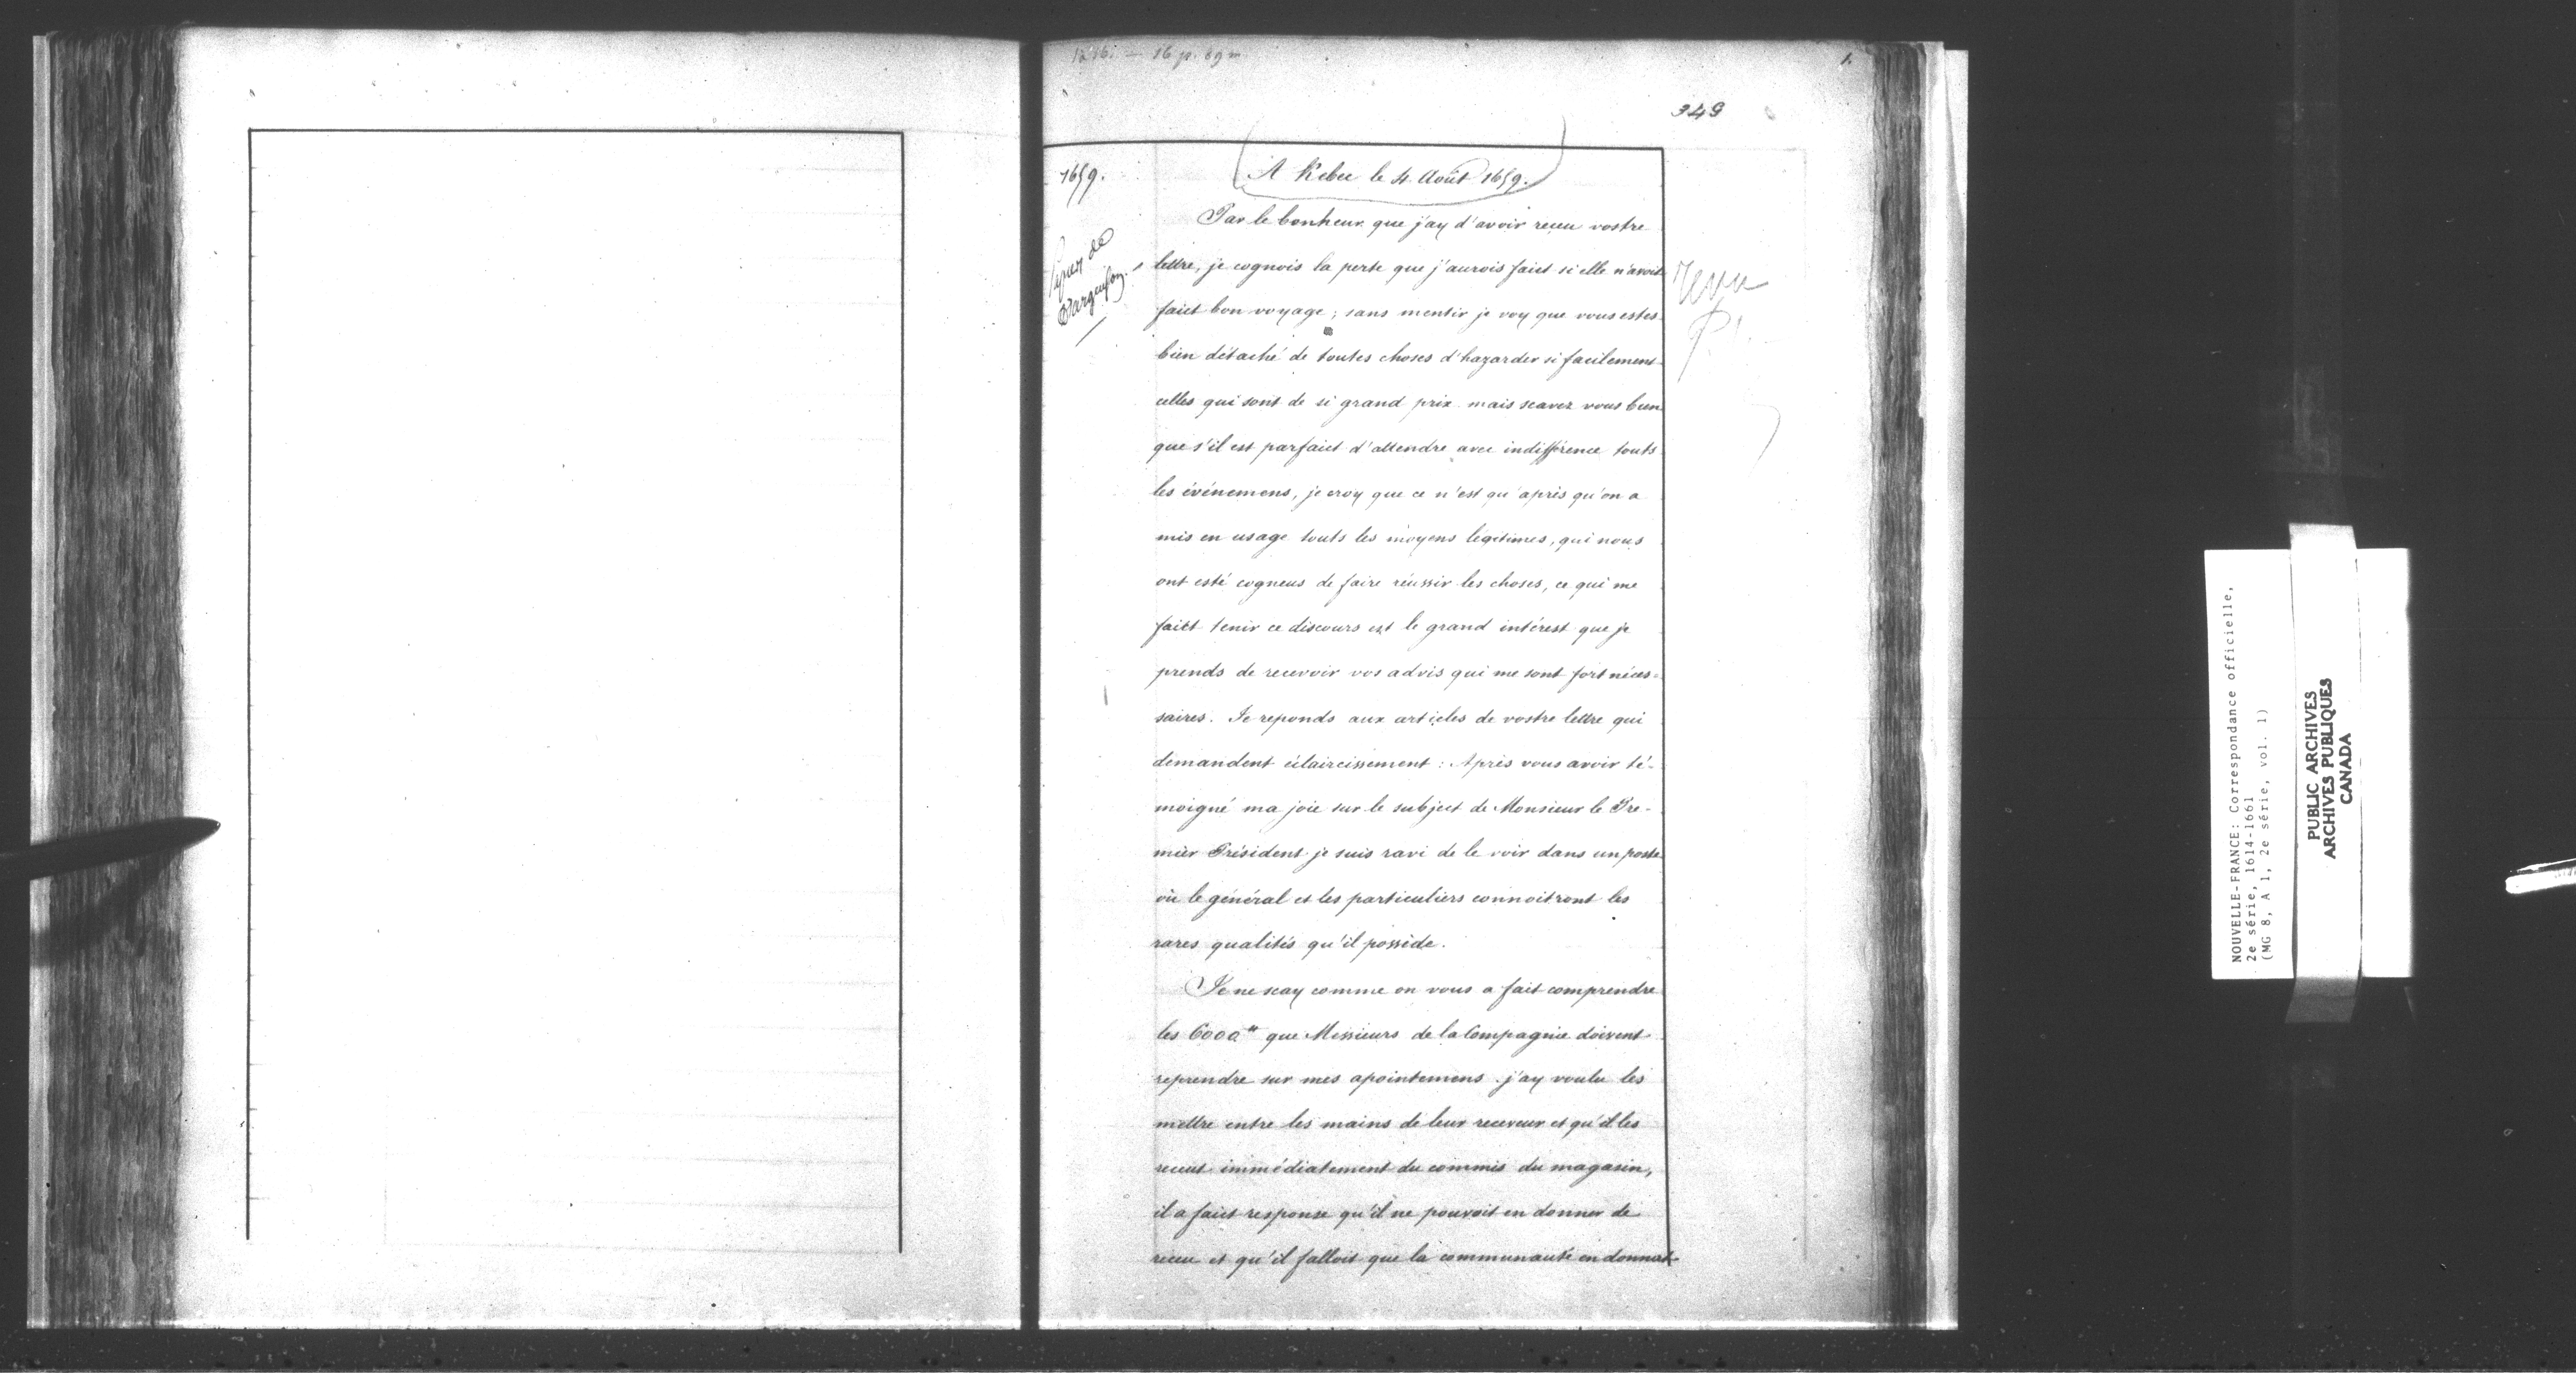 16 p.
1.
349
1659.
A Kebec le 4 Août 1659.
Par le bonheur que j'ay d'avoir receu vostre
lettre, je cognois la perte que j'aurois faict si elle n'avoit
faict bon voyage; sans mentir je voy que vous estes
bien détaché de toutes choses d'hazarder si facilement
celles qui sont de si grand prix mais scavez vous bien
que s'il est parfaict d'attendre avec indifférence touts
les événemens, je croy que ce n'est qu'après qu'on a
mis en usage touts les moyens légitimes, qui nous
ont esté cogneus de faire réussir les choses, ce qui me
faict tenir ce discours est le grand intérest que je
prends de recevoir vos advis qui me sont fort néces-
saires. Je reponds aux articles de vostre lettre qui
demandent éclaircissement: Après vous avoir té-
moigné ma joie sur le subject de Monsieur le Pre-
mier Président je suis ravi de le voir dans un poste
où le général et les particuliers connoitront les
rares qualités qu'il possède.
Je ne scay comme on vous a fait comprendre
les 6000# que Messieurs de la Compagnie doivent
reprendre sur mes apointemens. j'ay voulu les
mettre entre les mains de leur receveur et qu'il les
receut immédiatement du commis du magasin,
il a faict response qu'il ne pouvoit en donner de
receu et qu'il falloit que la communauté en donnat
d'argenson.
revu
NOUVELLE-FRANCE: Correspondance officielle,
2e série, 1614-1661
(MG 8, A 1, 2e série, vol. 1)
PUBLIC ARCHIVES
ARCHIVES PUBLIQUES
CANADA